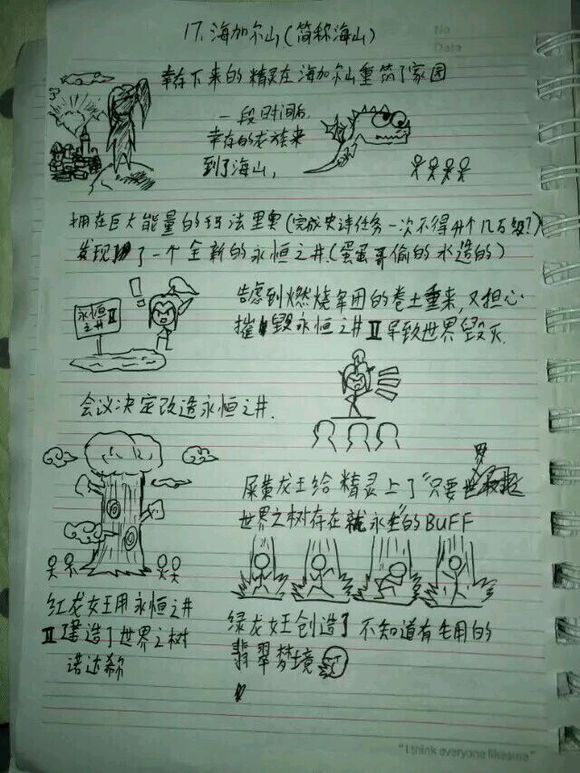 No
Data
17. 海加尔山(简称海山)
幸存下来的精灵在海加尔山重筑了家园
一段时间后,
幸存的龙族来
到了海山,
拥在巨大能量的玛法里奥(完成史诗任务一次不得升个几万级?)
发现了一个全新的永恒之井.(蛋蛋哥偷的水造的)
永恒
之井 II
!
考虑到燃烧军团的卷土重来,又担心
摧毁永恒之井 II 导致世界毁灭.
会议决定改造永恒之井.
龙王给精灵上了"只要世界
世界之树存在就永生"的BUFF
红龙女王用永恒之井
II 建造了世界之树
诺达希尔
绿龙女王创造了不知道有毛用的
翡翠梦境
"I think everyone likes me"